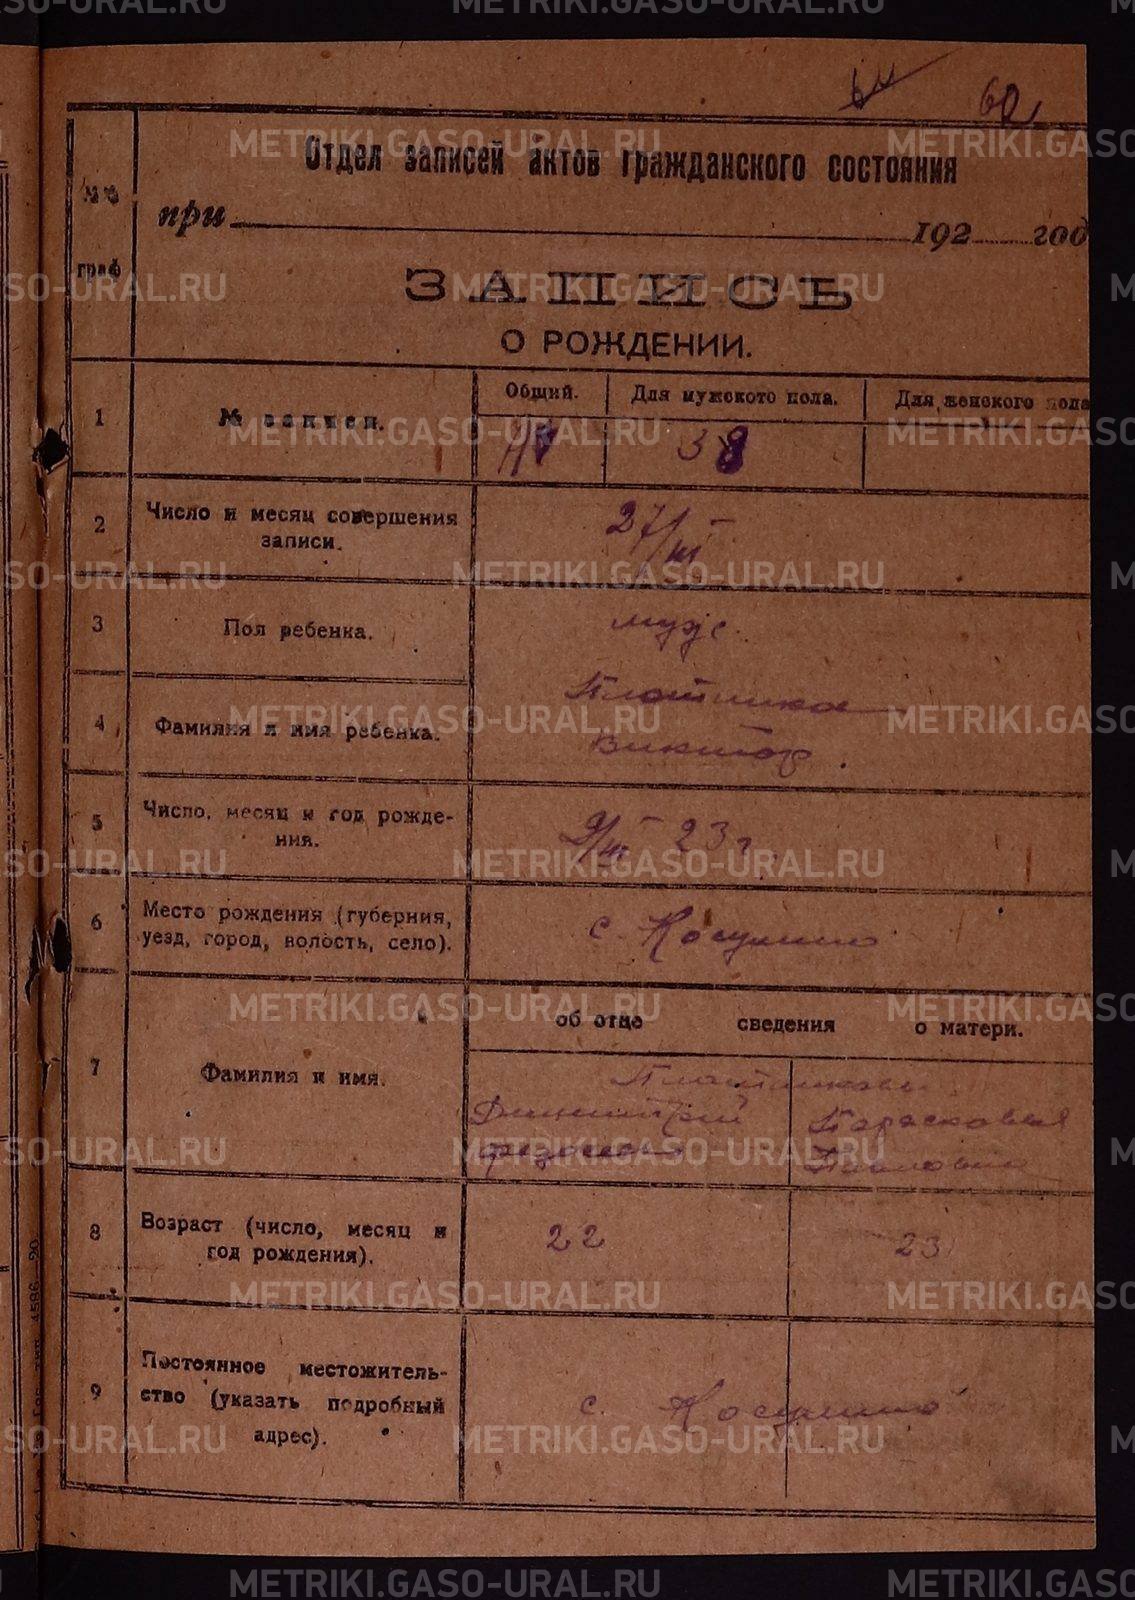 60
Отдел записей актов гражданского состояния
при 192 год
№№ граф
ЗАПИСЬ
О РОЖДЕНИИ.
1 № записи. Общий. Для мужского пола. Для женского пола
38
2 Число и месяц совершения
записи.
27/III
3 Пол ребенка. муж.
4 Фамилия и имя ребенка.
Плотников
Виктор.
5 Число, месяц и год рожде-
ния.
9/III 23 г.
6 Место рождения (губерния,
уезд, город, волость, село).
с. Косулино
об отце сведения о матери.
7 Фамилия и имя.
Плотниковы
Димитрий Парасковья
Павловна
8 Возраст (число, месяц и
год рождения).
22 23
9 Постоянное местожитель-
ство (указать подробный
адрес).
с. Косулино
METRIKI.GASO-URAL.RU